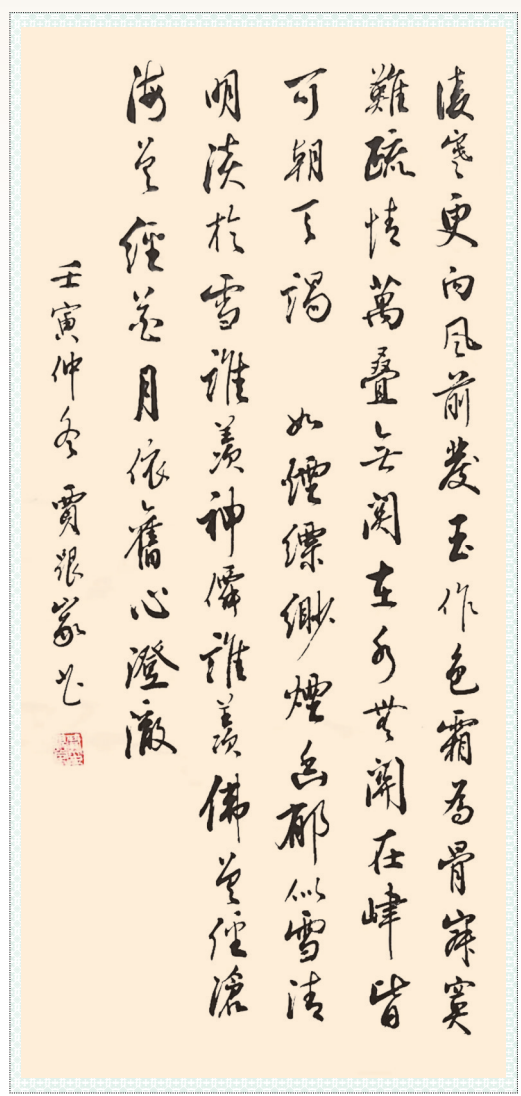 凌寒更向风前發玉作色霜為骨寂寞
難疏情萬疊無関在水無關在峰皆
可朝天謁 如煙縹緲煙幽郁似雪清
明淡於雪誰羨神僊誰羨佛曾經滄
海曾經花月依舊心澄澈
壬寅仲冬賈書